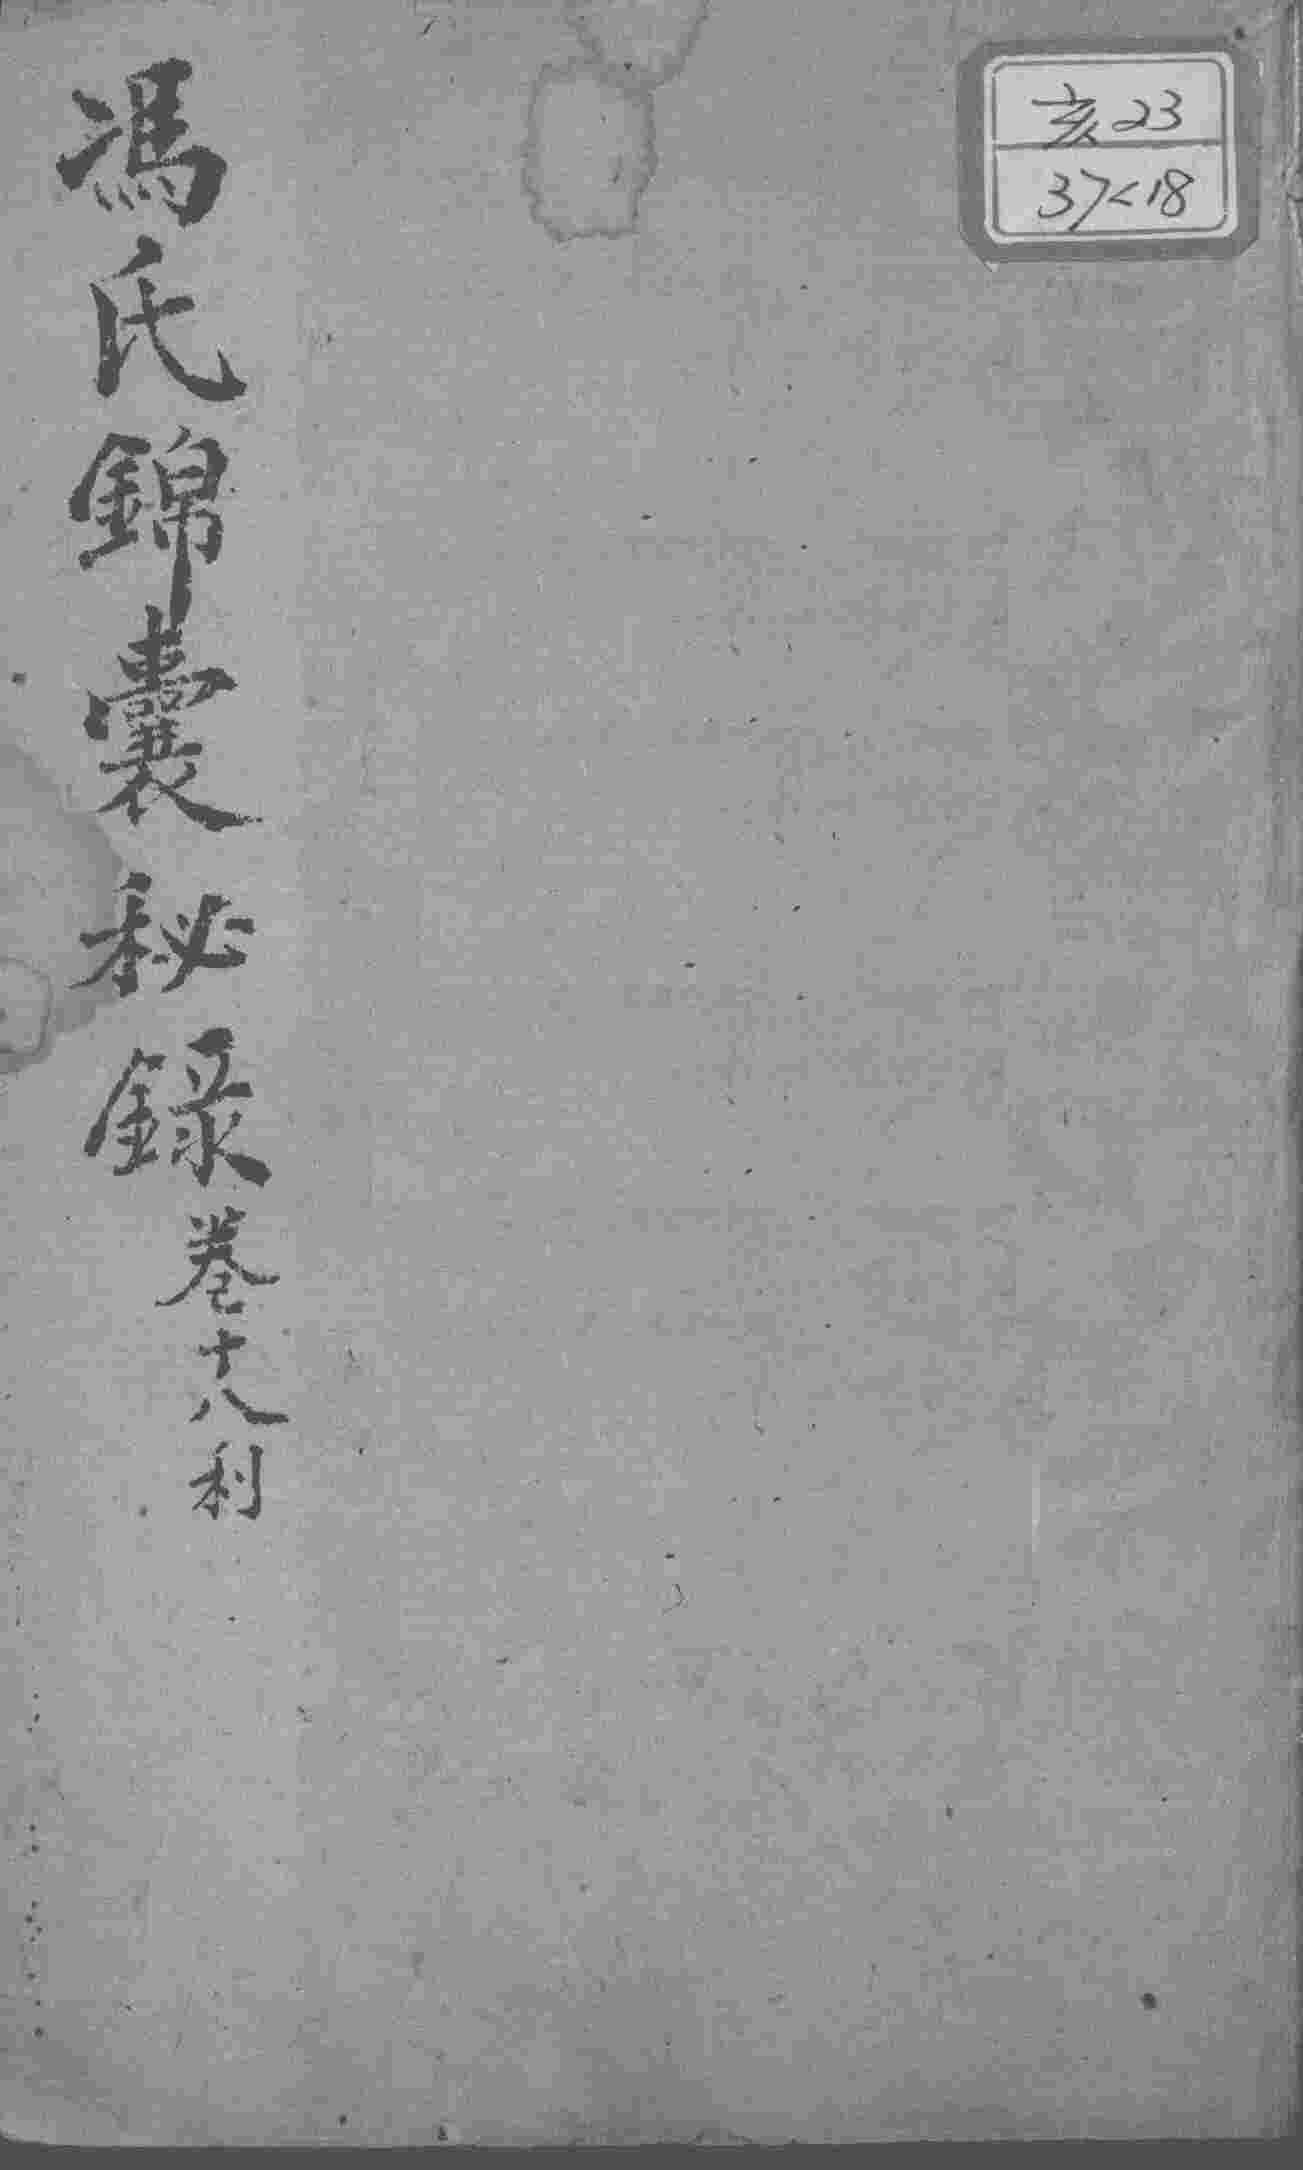 亥23
37<18
馮氏錦囊秘錄卷十八利